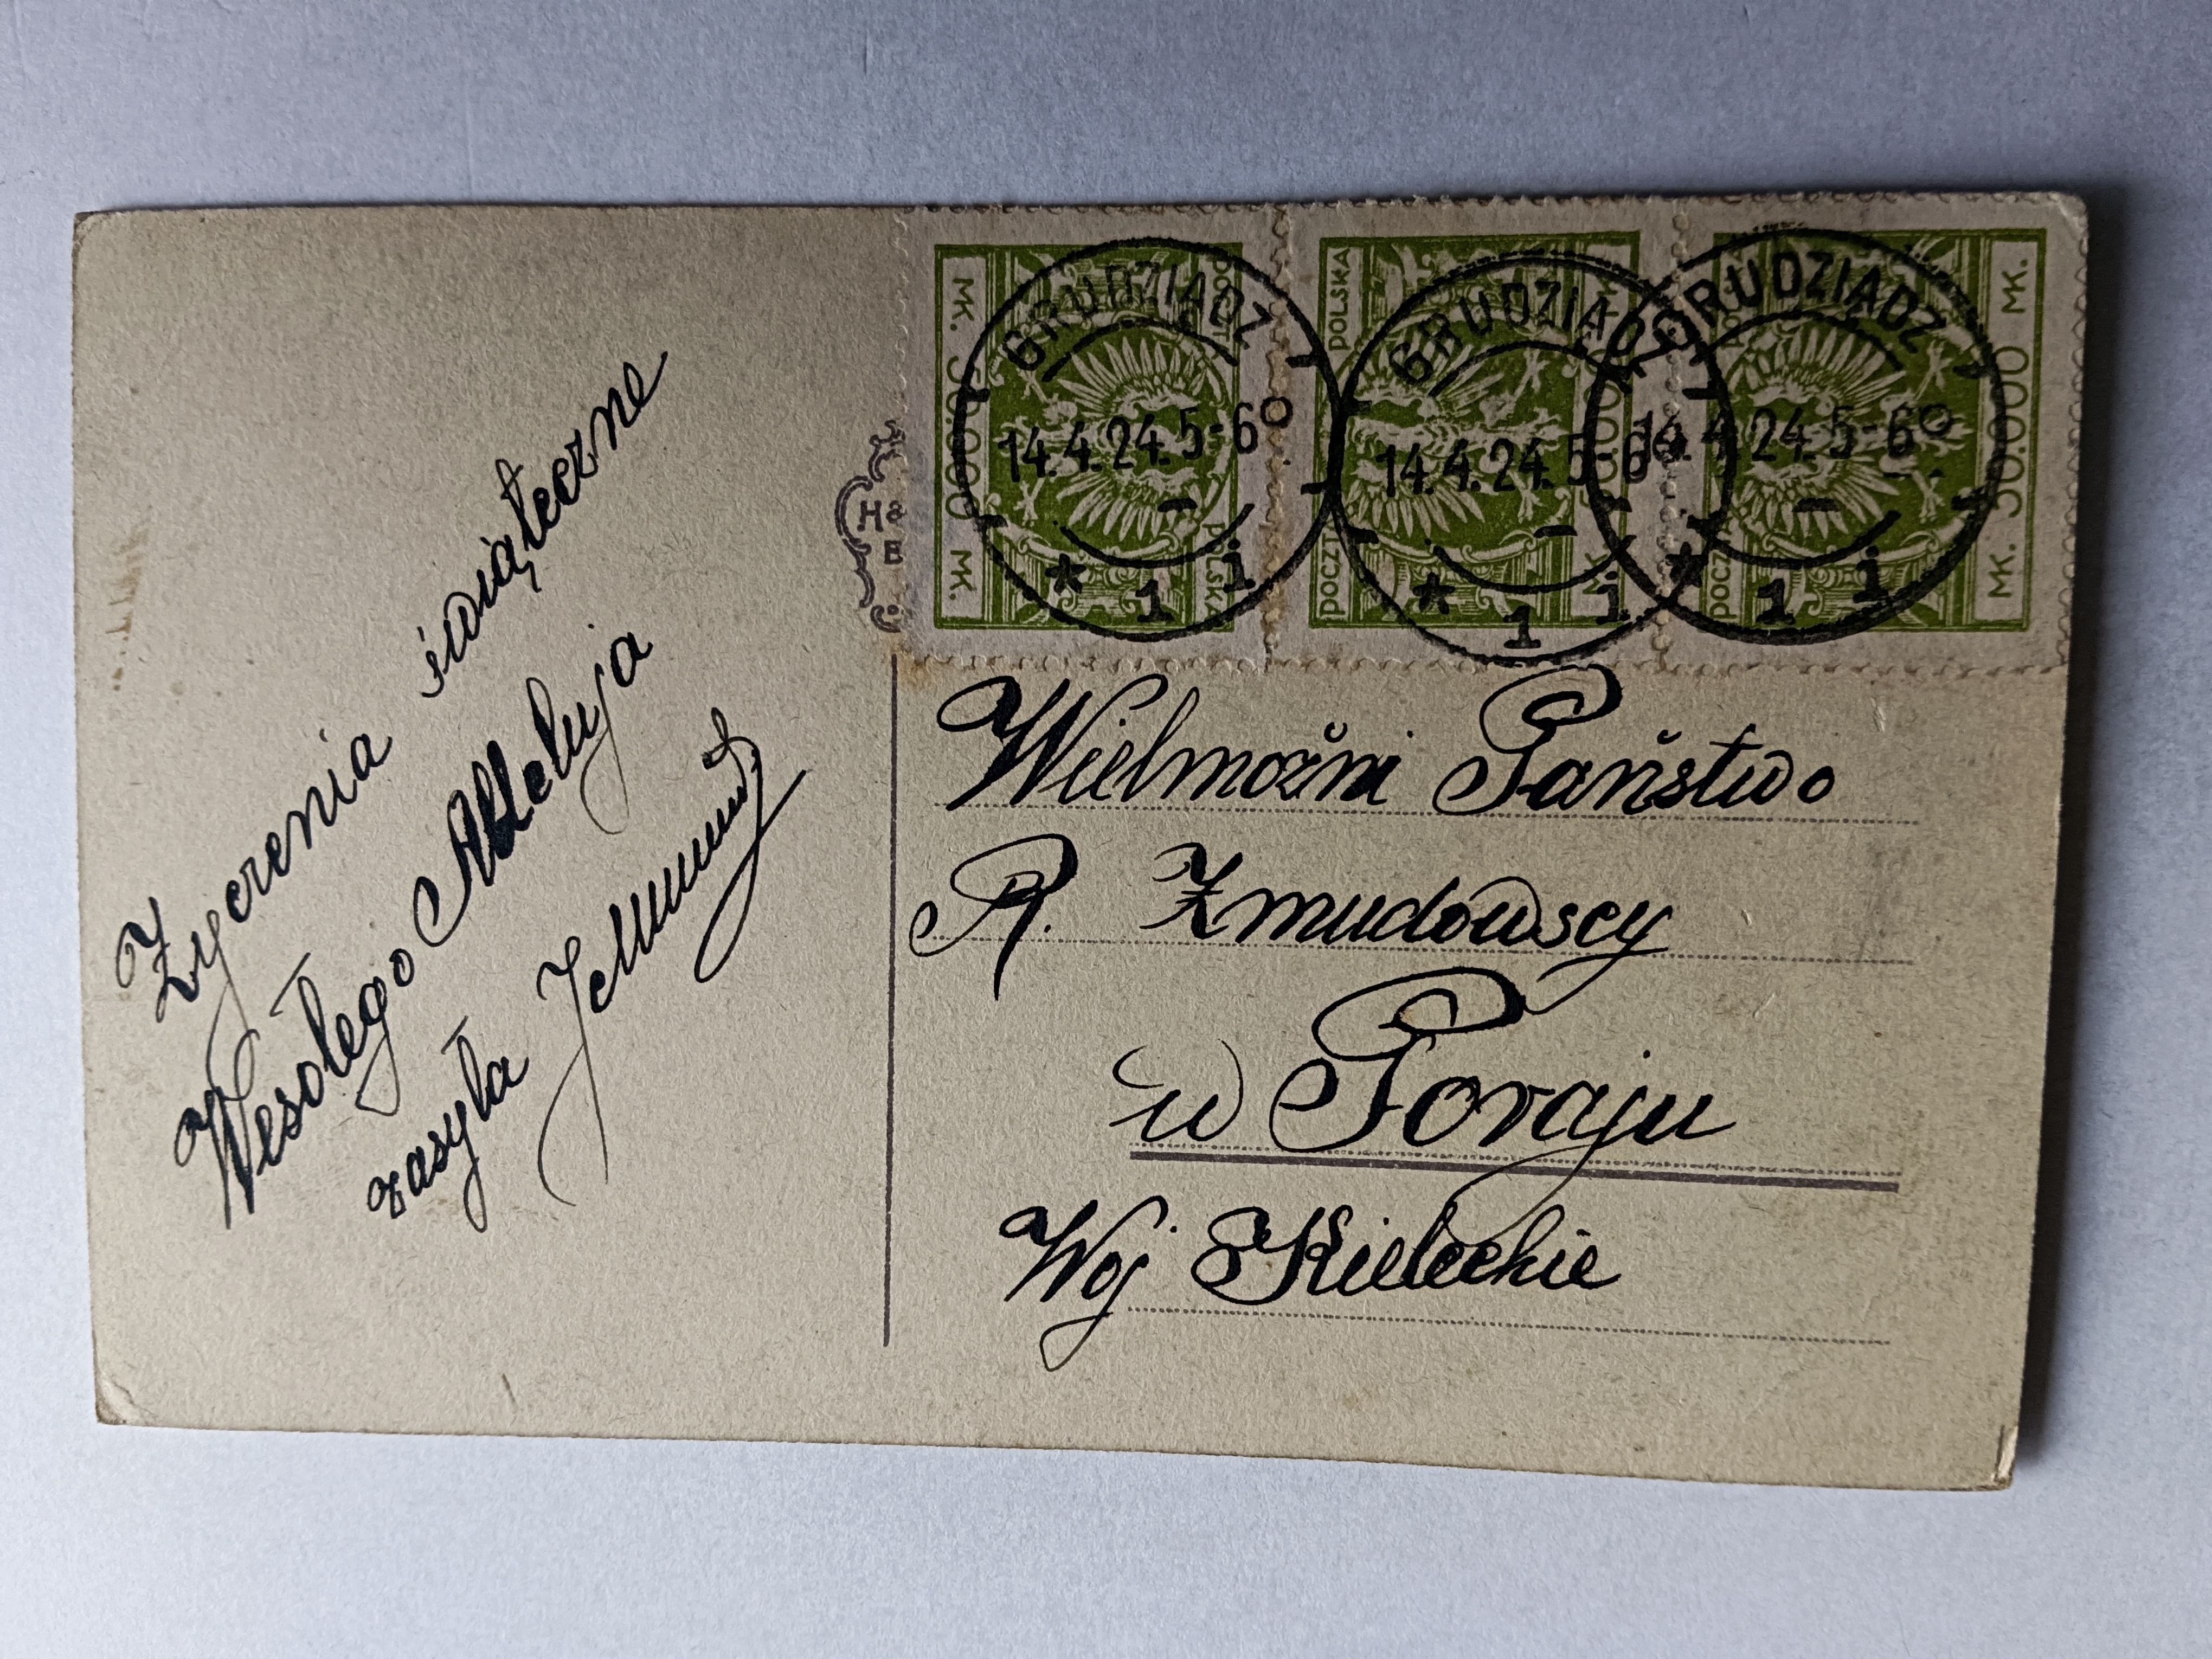 Życzenia świąteczne
Wesołego Alleluja
zasyła
Ha
E
MK. 50.000 MK.
POCZTA POLSKA
POCZTA POLSKA
MK. 50.000 MK.
POCZTA
MK. 50.000 MK.
GRUDZIĄDZ
14.4.24.5-6⁰
* 1 i
GRUDZIĄDZ
14.4.24.5-6⁰
* 1 i
GRUDZIĄDZ
14.4.24.5-6⁰
* 1 i
Wielmożni Państwo
R. Żmudowscy
w Poraju
Woj Kieleckie